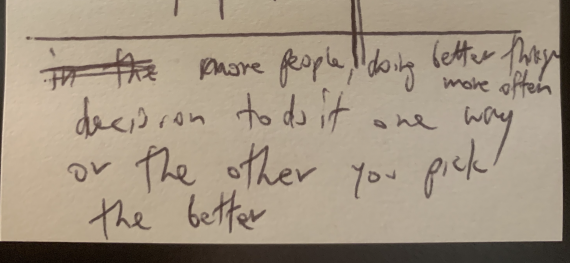 in the more people, doing better things
more often
decision to do it one way
or the other you pick
the better